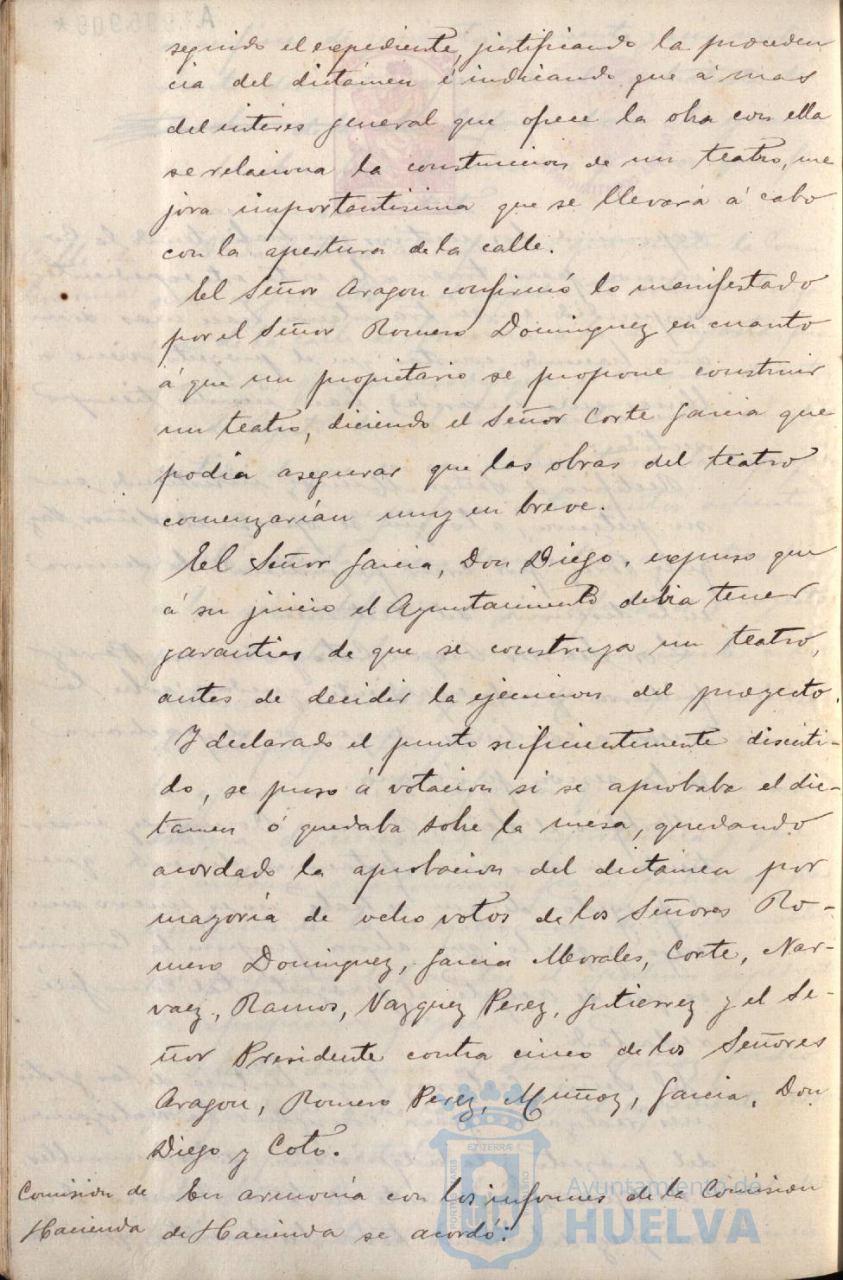 seguido el expediente, justificando la proceden
cia del dictámen é indicando que á mas
del interés general que ofrece la obra con ella
se relaciona la construccion de un teatro, me
jora importantisima que se llevará á cabo
con la apertura de la calle.
El Señor Aragon confirmó lo manifestado
por el Señor Romero Dominguez en cuanto
á que un propietario se propone construir
un teatro, diciendo el Señor Corte Garcia que
podia asegurar que las obras del teatro
comenzarían muy en breve.
El Señor Garcia, Don Diego, expuso que
á su juicio el Ayuntamiento debia tener
garantias de que se construya un teatro,
antes de decidir la ejecucion del proyecto.
Y declarado el punto suficientemente discuti-
do, se puso á votacion si se aprobaba el dic-
tamen ó quedaba sobre la mesa, quedando
acordado la aprobacion del dictámen por
mayoría de ocho votos de los Señores Ro-
mero Dominguez, Garcia Morales, Corte, Nar-
vaez, Ramos, Vazquez Perez, Gutierrez y el Se-
ñor Presidente contra cinco de los Señores
Aragon, Romero Perez, Muñoz, Garcia, Don
Diego y Coto.
Comision de
Hacienda
En armonía con los informes de la Comision
de Hacienda se acordó:
Ayuntamiento de
HUELVA